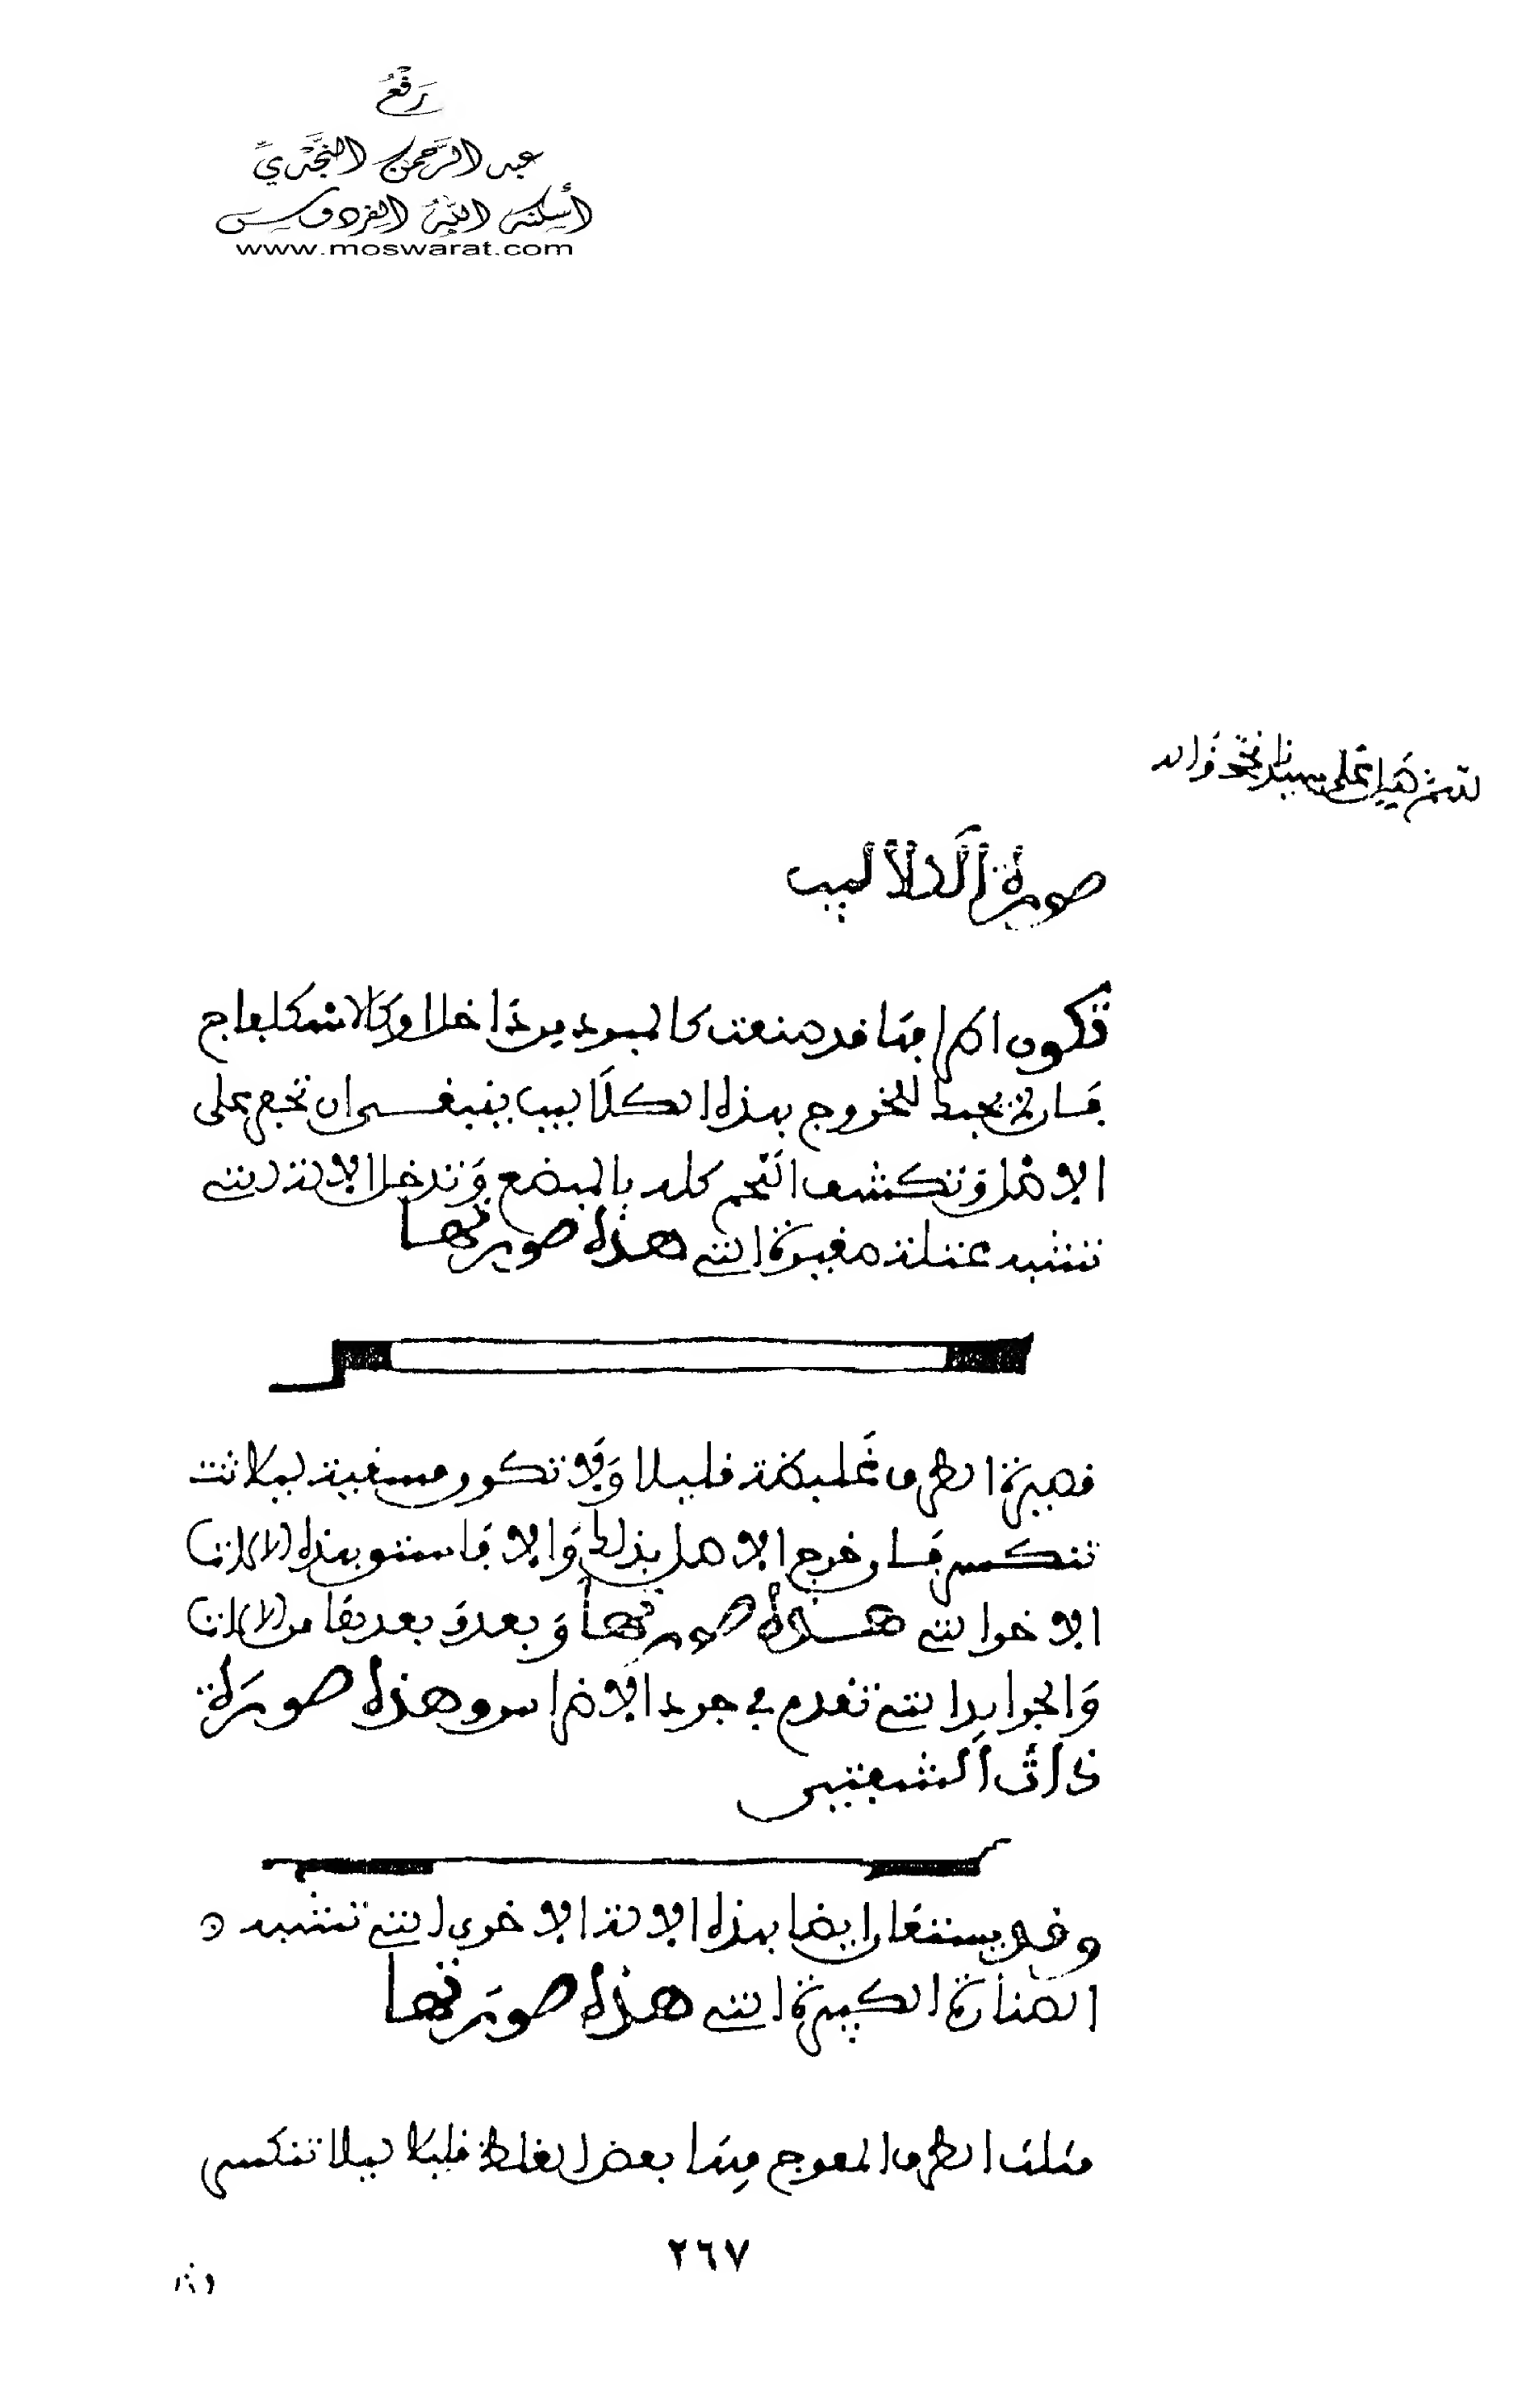 رفع
عبد الرحمن النجدي
أسكنه الله الفردوس
www.moswarat.com
صورة الكلاليب
تكون اطرافها قد صنعت كالمبرد من داخل او كالاسكلفاج
فان لم يجب للخروج بهذه الكلاليب ينبغي ان تحفر على
الاصل وتكشف اللحم كله بالمبضع وتدخل الالة التي
تشبه عتلة صغيرة التي هذه صورتها
قصيرة الطرف غليظة قليلا ولا تكون مسقية ليلا
تنكسر فان خرج الاصل بذلك والا فاستعن بهذه الالات
الاخر التي هذه صورتها وبعد بعدها من الالات
والحوايد التي تقدم في جرد الاضراس وهذه صورة
ذات الشعبتين
وقد يستعان ايضا بهذه الالة الاخرى التي تشبه
الصنارة الكبيرة التي هذه صورتها
مثلثة الطرف المعوج فيها بعض الغلظ قليلا ليلا تنكسر
٢٦٧